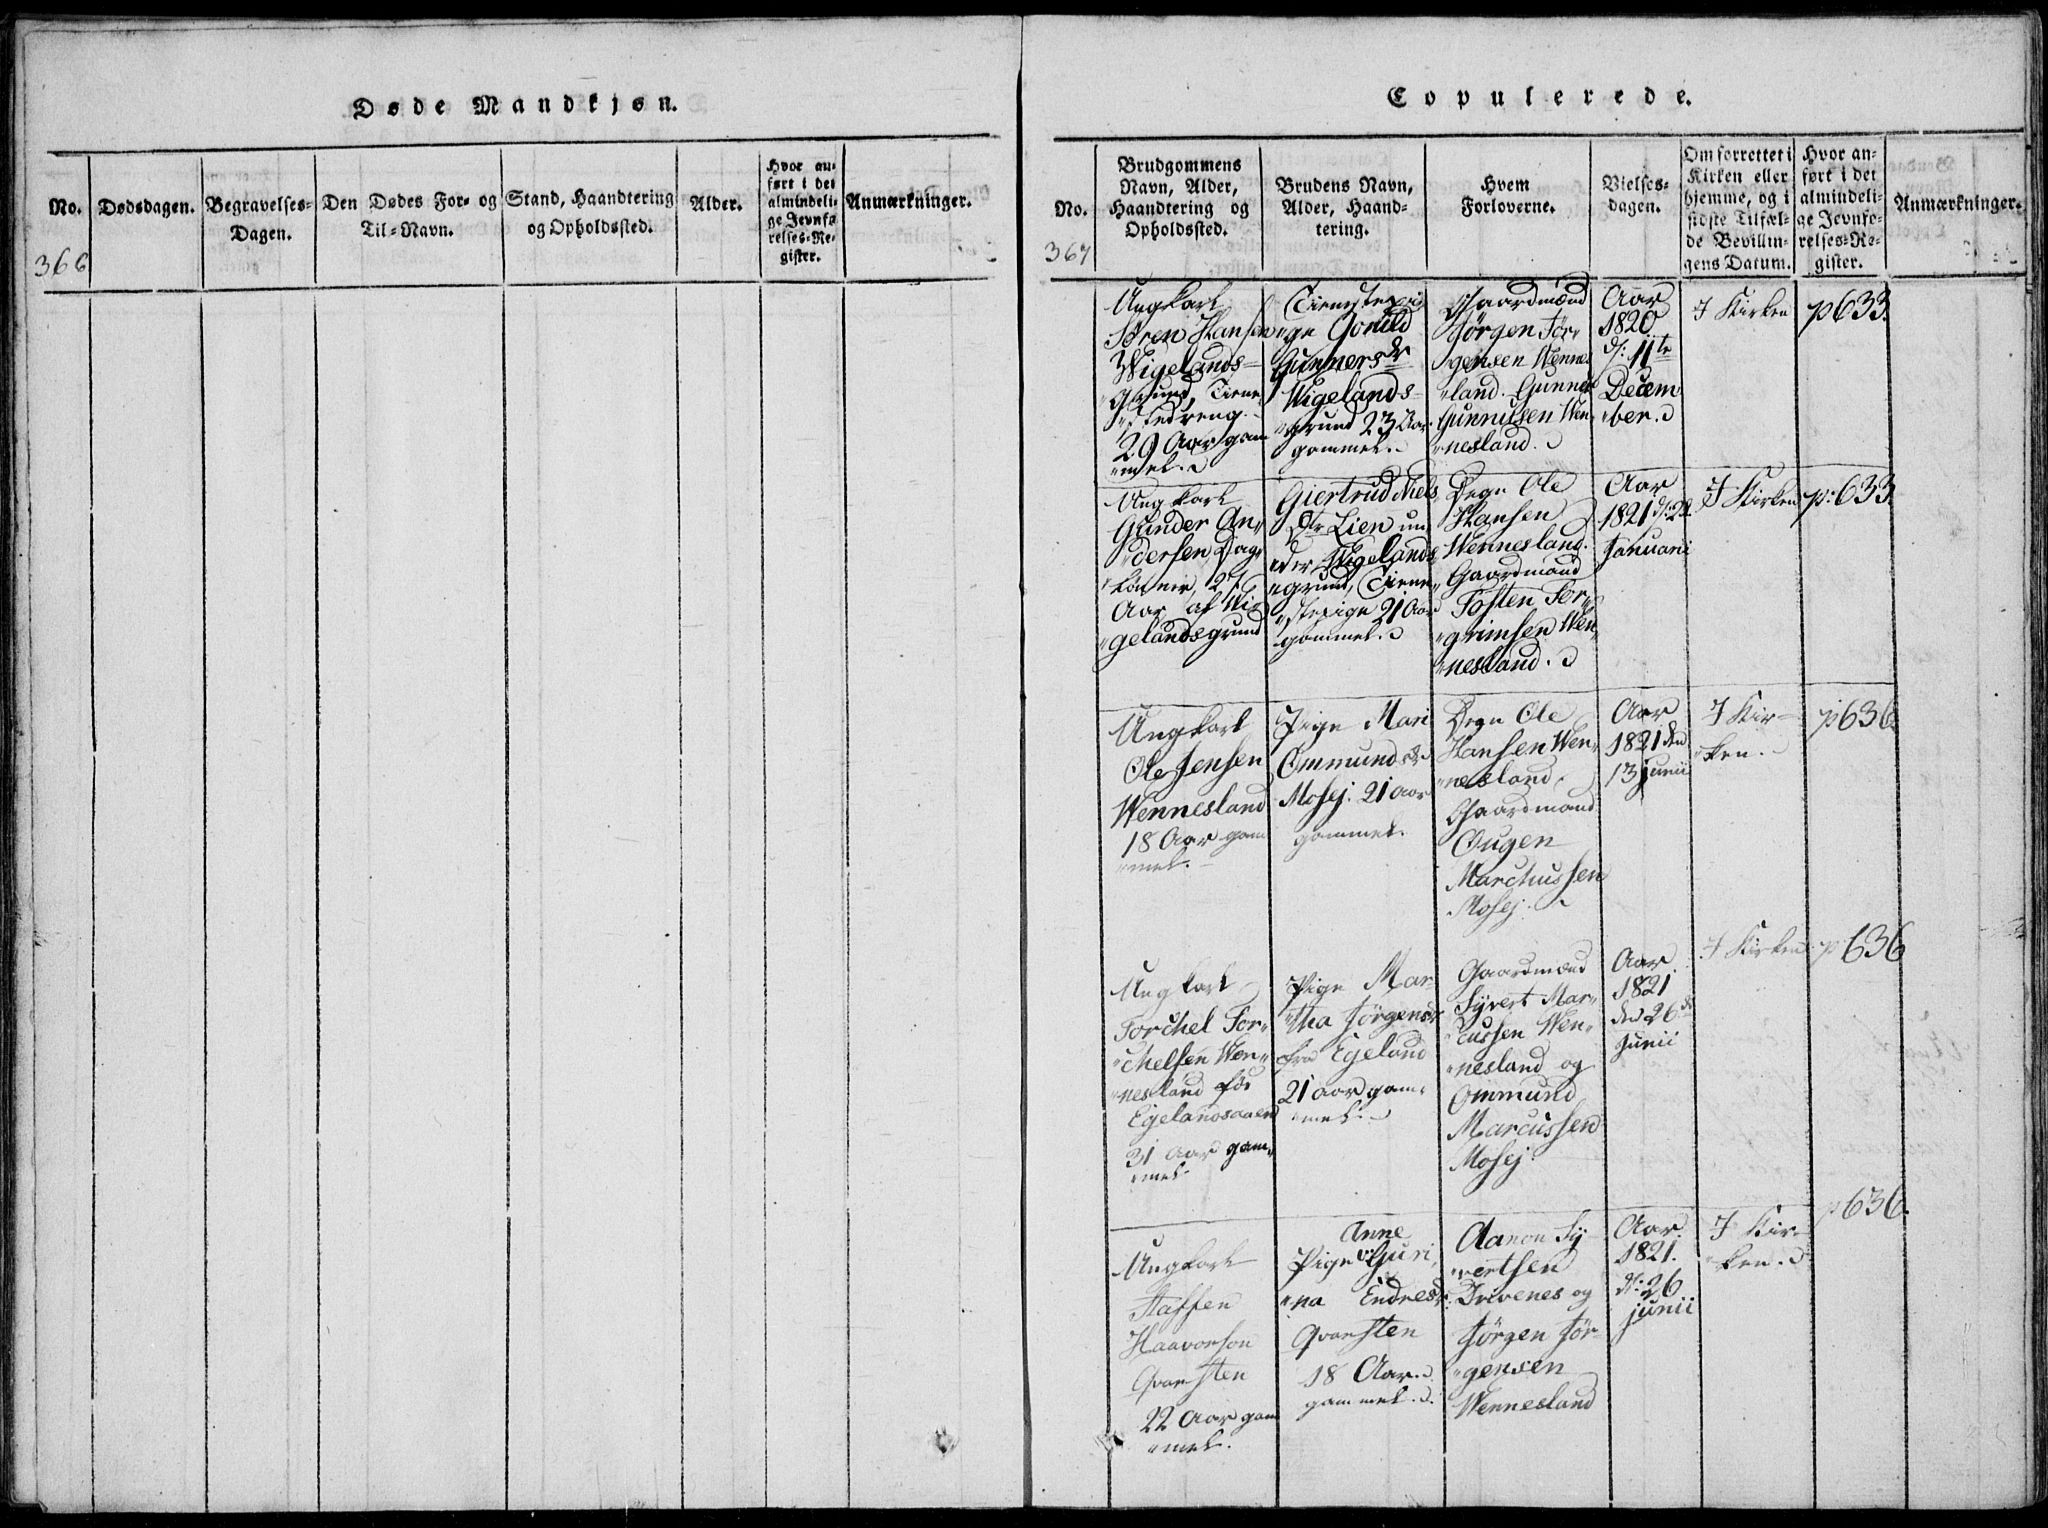 Døde Mandkjøn.
No.
Dødsdagen.
Begravelses-
Dagen.
Den Dødes For- og
Til-Navn.
Stand, Haandtering
og Opholdssted.
Alder.
Hvor an-
ført i det
almindeli-
ge Jevnfø-
relses-Re-
gister.
Anmærkninger.
366
Copulerede.
No.
Brudgommens
Navn, Alder,
Haandtering og
Opholdssted.
Brudens Navn,
Alder, Haand-
tering.
Hvem
Forloverne.
Vielses-
dagen.
Om forrettet i
Kirken eller
hjemme, og i
sidste Tilfæl-
de Bevillin-
gens Datum.
Hvor an-
ført i det
almindeli-
ge Jevnfø-
relses-Re-
gister.
Anmærkninger.
367
Ungkarl
Søren Hansen
Wigelands-
Grund, Tiene-
stedreng
29 Aar gam
mel.
Tienstepi
ge Gonild
Gunnersdr
Wigelands-
grund 23 Aar
gammel.
Gaardmænd
Jörgen Jör-
gensen Wennes
land. Gunner
Gunnulsen Wen-
nesland.
Aar
1820
d: 11te
Decem
ber.
J Kirken
p 633.
Ungkarl
Gunder An-
dersen Dag-
lönner, 27
Aar af Wi-
gelandsgrund
Giertrud Niels
dtr Lien un
der Wigelands
grund, Tiene-
stepige 21 Aar
gammel.
Degn Ole
Hansen
Wennesland.
Gaardmand
Tosten Tor-
grimsen Wen-
nesland.
Aar
1821 d: 22
Januarii
J Kirken
p: 633
Ungkarl
Ole Jensen
Wennesland
18 Aar gam
mel.
Pige Mari
Ommundsdr
Mosej. 21 Aar
gammel.
Degn Ole
Hansen Wen-
nesland,
Gaardmand
Ougen
Marchussen
Mosej.
Aar
1821 den
13 junii
J Kir-
ken.
p 636.
Ungkarl
Torchel Tor-
chelsen Wen-
nesland før
Egelandsaaen
31 Aar gam-
mel.
Pige Mar-
tha Jörgensdr
fra Egeland
21 aar gam-
mel.
Gaardmænd
Syvert Mar-
cussen Wen-
nesland og
Ommund
Marcussen
Mosej.
Aar
1821
den 26de
Junii
J Kirken
p 636
Ungkarl
Staffen
Haavorson
Qvarsten
22 Aar gam
mel.
Anne
Pige Guri,
na Endresdr
Qvarsten
18 Aar.
gammel.
Aanon Sy
vertsen
Drivenes og
Jörgen Jör-
gensen
Wennesland
Aar
1821.
d: 26
junii
J Kir-
ken.
p 636.